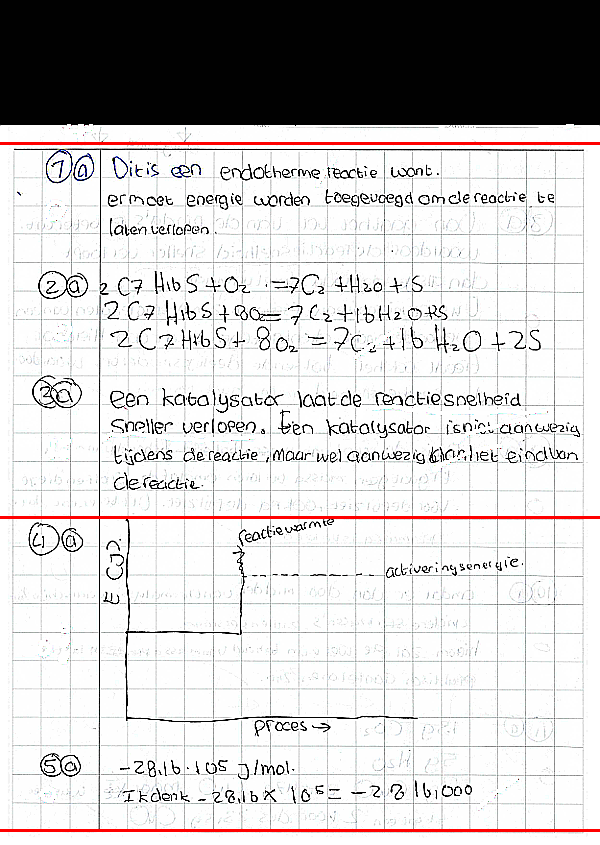 1 a Dit is een endotherme reactie want.
er moet energie worden toegevoegd om de reactie te
laten verlopen.
2 a 2 C7 H16 S + O2 = 7C2 + H20 + 1S
2 C7 H16 S + 8O2 = 7C2 + 16 H2O + 2S
3 a een katalysator laat de reactiesnelheid
sneller verlopen. Een katalysator is niet aanwezig
tijdens de reactie, maar wel aanwezig aan het eind van
de reactie.
4 a
reactiewarmte
activeringsenergie.
E (J).
proces →
5 a -28,16 · 105 J/mol.
Ik denk -28,16 x 10^5 = -2816,000